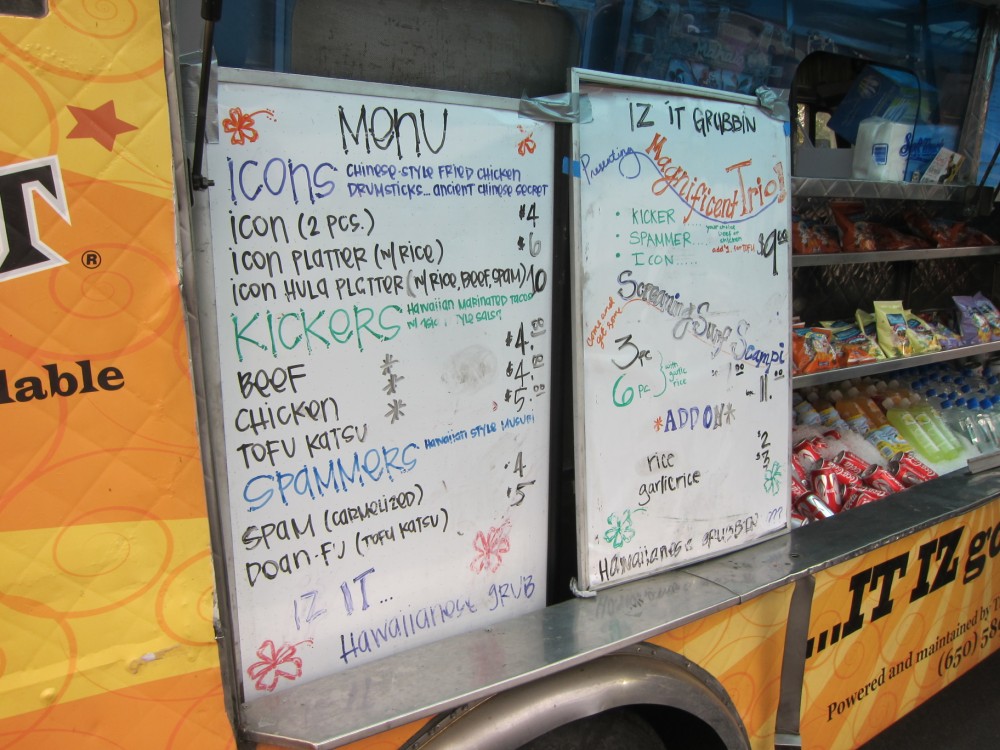 Menu
ICONS CHINESE-STYLE FRIED CHICKEN
DRUMSTICKS... ANCIENT CHINESE SECRET
ICON (2 PCS.) $4
ICON PLATTER (W/RICE) $6
ICON HULA PLATTER (W/RICE, BEEF, SPAM) 10
KICKERS HAWAIIAN MARINATED TACOS
W/ SALSA
BEEF * $4.00
CHICKEN * $4.00
TOFU KATSU * $5.00
SPAMMERS HAWAIIAN STYLE MUSUBI
SPAM (CARMELIZED) 4
DOAN-FU (TOFU KATSU) $5
IZ IT...
HAWAIIANESE GRUB
IZ IT GRUBBIN
Presenting
Magnificent Trio!
• KICKER
• SPAMMER....
• ICON.....
your choice
beef or
chicken
add'l for TOFU
$9.00
Screaming Surf Scampi
Come and
get some
3pc
6pc
with
garlic
rice
11.00
*ADD ON*
rice $2
garlic rice $3
Hawaiianese GRUBBIN ???
®
lable
...IT IZ go
Powered and maintained by
(650) 58